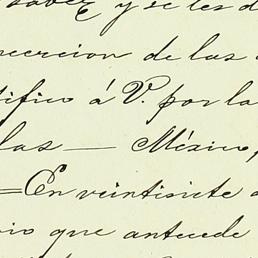 saber y se les d
cercion de las
tifico á V. por la
las — México,
=En veintisiete d
rio que antecede